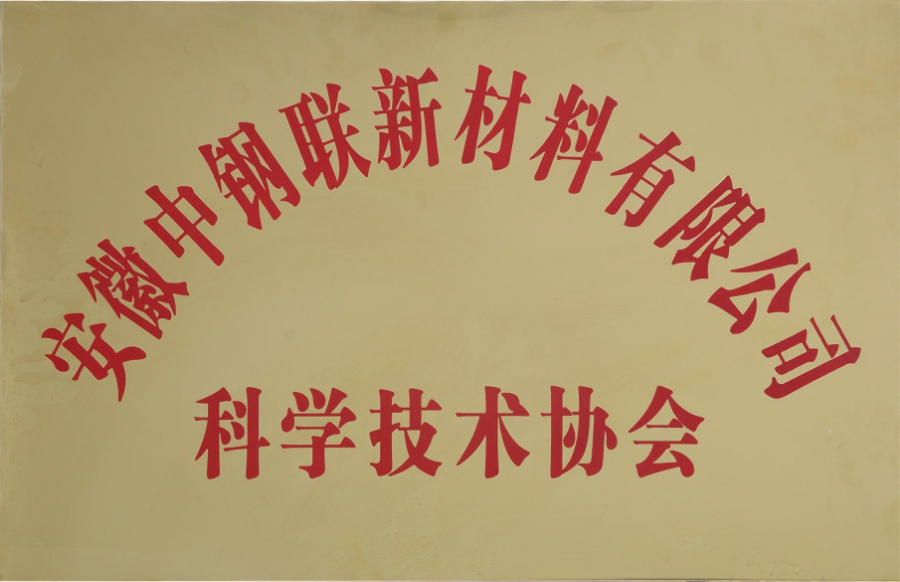 安徽中钢联新材料有限公司
科学技术协会